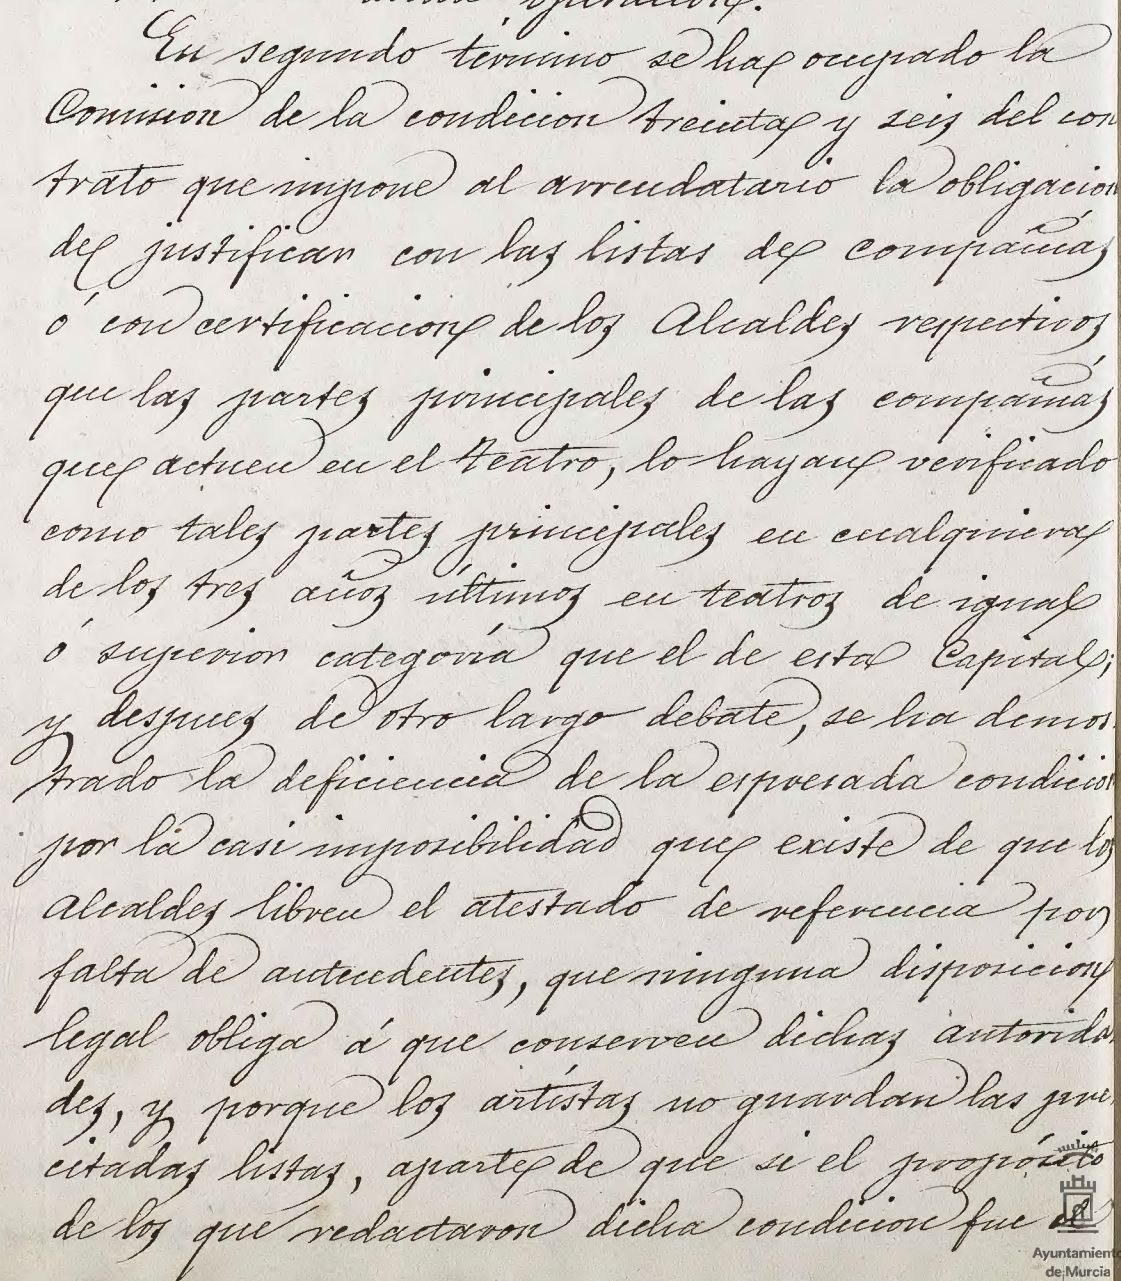 En segundo término se ha ocupado la
Comision de la condicion treinta y seis del con
trato que impone al arrendatario la obligacion
de justificar con las listas de compañias
ó con certificacion de los Alcaldes respectivos
que las partes principales de las compañias
que actuen en el teatro, lo hayan verificado
como tales partes principales en cualquiera
de los tres años últimos en teatros de igual
ó superior categoría que el de esta Capital;
y despues de otro largo debate, se ha demos
trado la deficiencia de la espresada condicion
por la casi imposibilidad que existe de que los
Alcaldes libren el atestado de referencia por
falta de antecedentes, que ninguna disposicion
legal obliga á que conserven dichas autorida
des, y porque los artístas no guardan las pre
citadas listas, aparte de que si el propósito
de los que redactaron dicha condicion fue el
Ayuntamiento
de Murcia